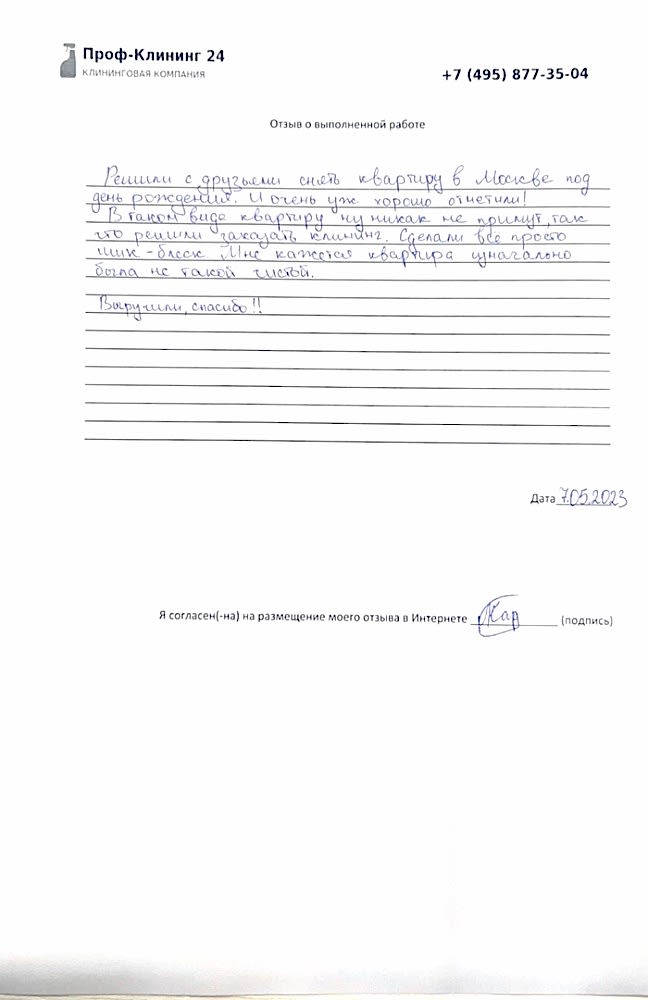 Проф-Клининг 24
КЛИНИНГОВАЯ КОМПАНИЯ
+7 (495) 877-35-04
Отзыв о выполненной работе
Решили с друзьями снять квартиру в Москве под
день рождения. И очень уж хорошо отметили!
В таком виде квартиру ну никак не примут, так
что решили заказать клининг. Сделали все просто
шик-блеск. Мне кажется квартира изначально
была не такой чистой.
Выручили, спасибо!!
Дата 7.05.2023
Я согласен(-на) на размещение моего отзыва в Интернете Кар (подпись)